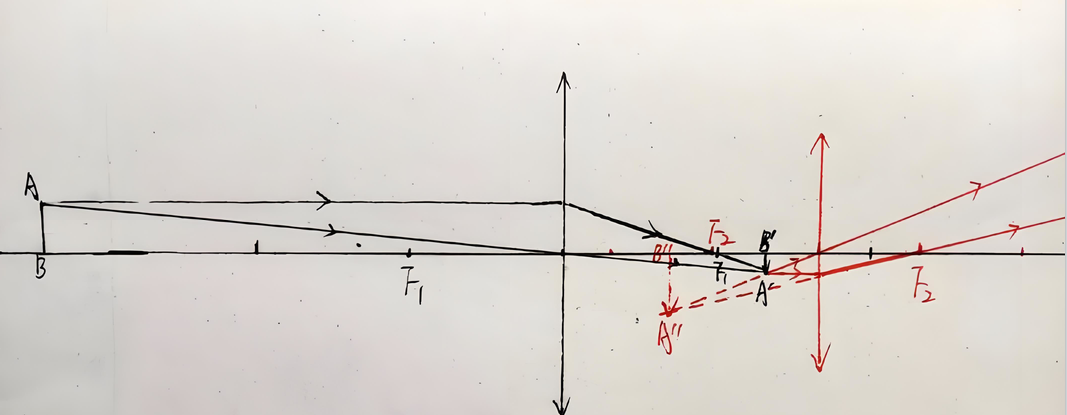 A
B
F₁
F₂
F₁
B''
B'
A'
A''
F₂